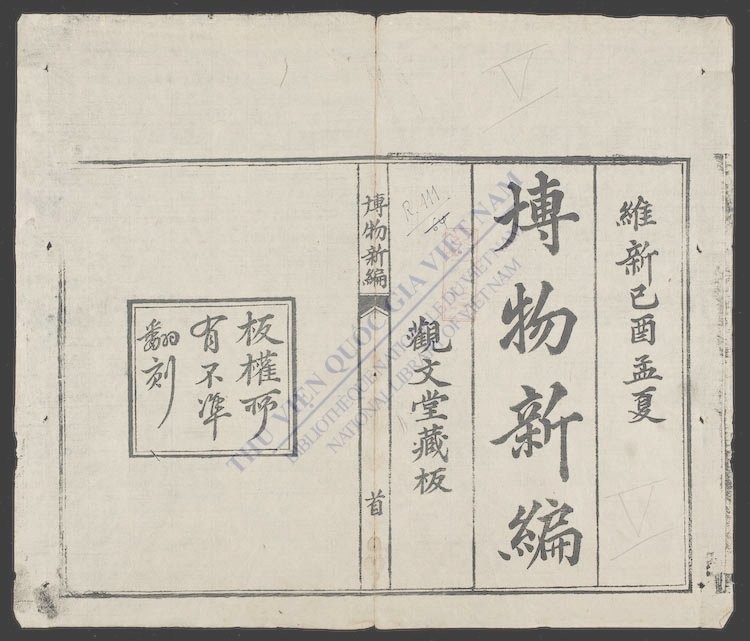 維新己酉孟夏
博物新編
觀文堂藏板
博物新編
首
板權所
有不準
翻刻
R.111
V
V
THƯ VIỆN QUỐC GIA VIỆT NAM
BIBLIOTHÈQUE NATIONALE DU VIETNAM
NATIONAL LIBRARY OF VIETNAM